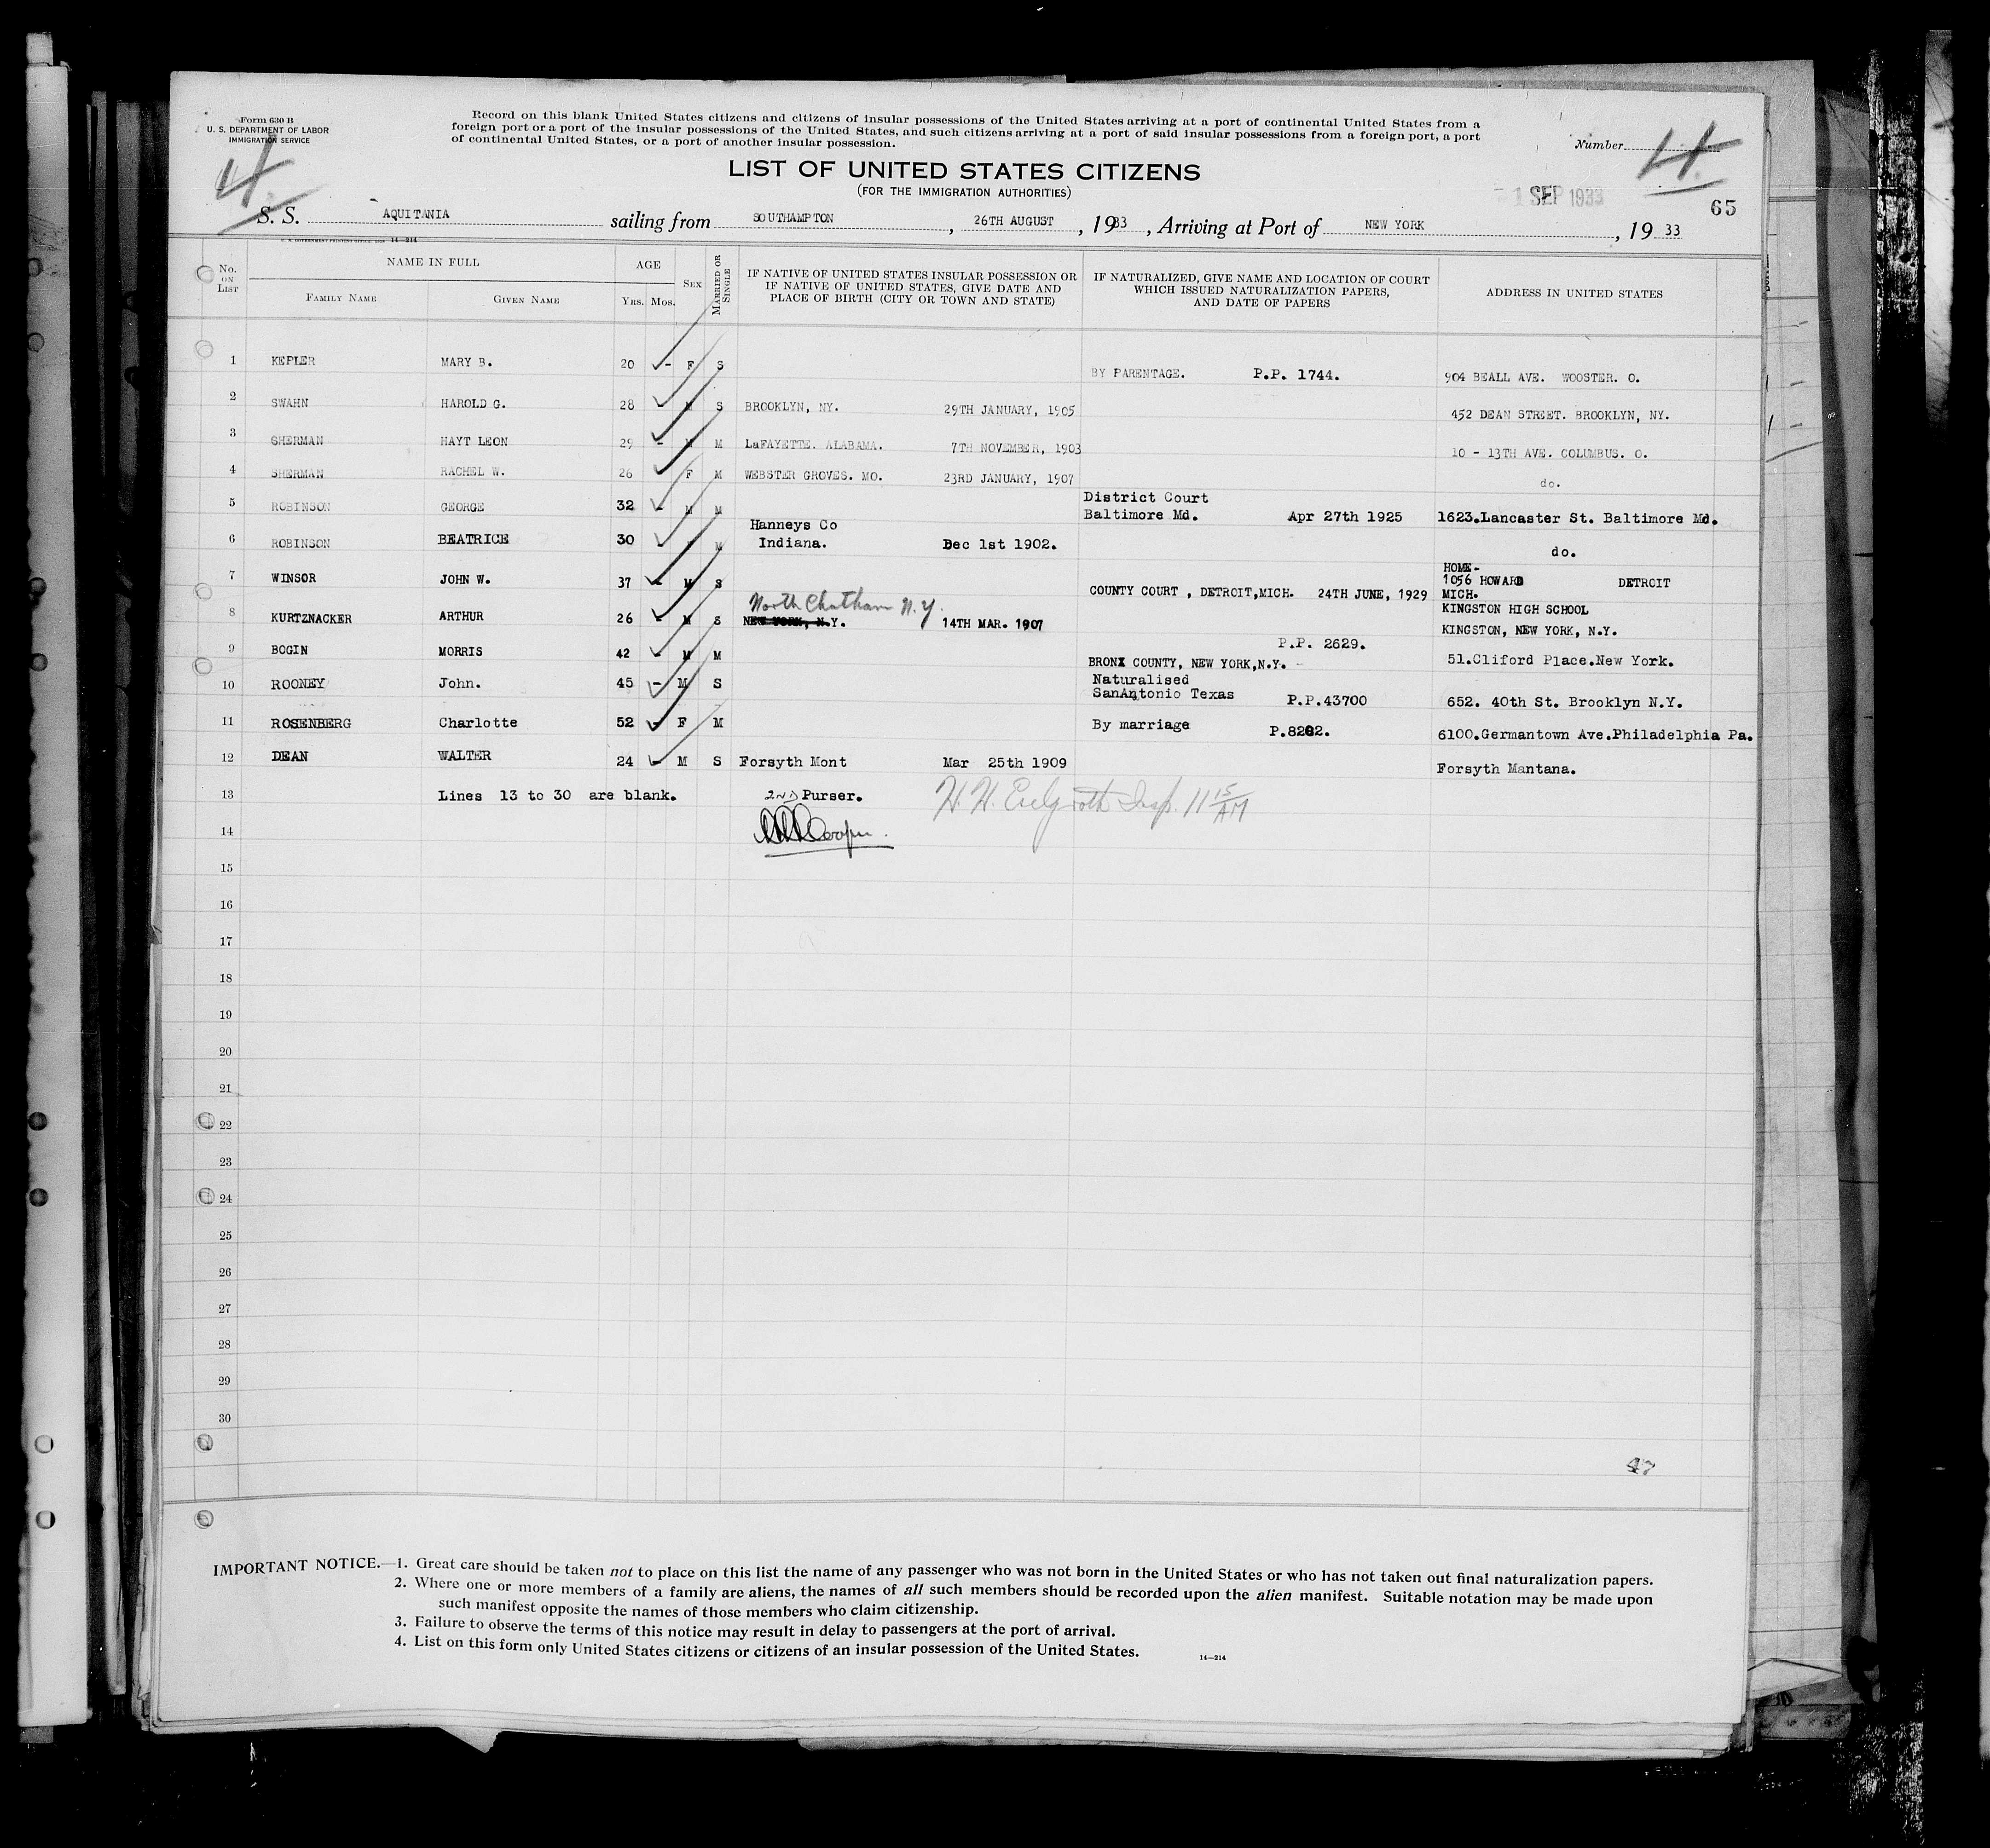 Form 630 B
U. S. DEPARTMENT OF LABOR
IMMIGRATION SERVICE
Record on this blank United States citizens and citizens of insular possessions of the United States arriving at a port of continental United States from a
foreign port or a port of the insular possessions of the United States, and such citizens arriving at a port of said insular possessions from a foreign port, a port
of continental United States, or a port of another insular possession.
Number
LIST OF UNITED STATES CITIZENS
(FOR THE IMMIGRATION AUTHORITIES)
1 SEP 1933
65
S. S. AQUITANIA sailing from SOUTHAMPTON, 26TH AUGUST, 1933, Arriving at Port of NEW YORK, 19 33
14—214
No. ON LIST
NAME IN FULL
FAMILY NAME
GIVEN NAME
AGE
YRS. MOS.
SEX
MARRIED OR SINGLE
IF NATIVE OF UNITED STATES INSULAR POSSESSION OR
IF NATIVE OF UNITED STATES, GIVE DATE AND
PLACE OF BIRTH (CITY OR TOWN AND STATE)
IF NATURALIZED, GIVE NAME AND LOCATION OF COURT
WHICH ISSUED NATURALIZATION PAPERS,
AND DATE OF PAPERS
ADDRESS IN UNITED STATES
1 KEPLER MARY B. 20 - F S BY PARENTAGE. P.P. 1744. 904 BEALL AVE. WOOSTER. O.
2 SWAHN HAROLD G. 28 M S BROOKLYN, NY. 29TH JANUARY, 1905 452 DEAN STREET. BROOKLYN, NY.
3 SHERMAN HAYT LEON 29 - M M LaFAYETTE. ALABAMA. 7TH NOVEMBER, 1903 10 - 13TH AVE. COLUMBUS. O.
4 SHERMAN RACHEL W. 26 F M WEBSTER GROVES. MO. 23RD JANUARY, 1907 do.
5 ROBINSON GEORGE 32 - M M District Court
Baltimore Md. Apr 27th 1925 1623.Lancaster St. Baltimore Md.
6 ROBINSON BEATRICE 30 - M Hanneys Co
Indiana. Dec 1st 1902. do.
7 WINSOR JOHN W. 37 - M S COUNTY COURT , DETROIT,MICH. 24TH JUNE, 1929 HOME-
1056 HOWARD DETROIT
MICH.
8 KURTZNACKER ARTHUR 26 - M S North Chatham N.Y.
NEW YORK, N.Y. 14TH MAR. 1907 KINGSTON HIGH SCHOOL
KINGSTON, NEW YORK, N.Y.
9 BOGIN MORRIS 42 - M M P.P. 2629.
BRONX COUNTY, NEW YORK,N.Y. - 51.Cliford Place.New York.
10 ROONEY John. 45 - M S Naturalised
SanAntonio Texas P.P.43700 652. 40th St. Brooklyn N.Y.
11 ROSENBERG Charlotte 52 - F M By marriage P.8202. 6100.Germantown Ave.Philadelphia Pa.
12 DEAN WALTER 24 - M S Forsyth Mont Mar 25th 1909 Forsyth Mantana.
13 Lines 13 to 30 are blank. 2ND Purser. Insp. 11 15 AM
14
15
16
17
18
19
20
21
22
23
24
25
26
27
28
29
30
47
IMPORTANT NOTICE.—1. Great care should be taken not to place on this list the name of any passenger who was not born in the United States or who has not taken out final naturalization papers.
2. Where one or more members of a family are aliens, the names of all such members should be recorded upon the alien manifest. Suitable notation may be made upon
such manifest opposite the names of those members who claim citizenship.
3. Failure to observe the terms of this notice may result in delay to passengers at the port of arrival.
4. List on this form only United States citizens or citizens of an insular possession of the United States.
14—214